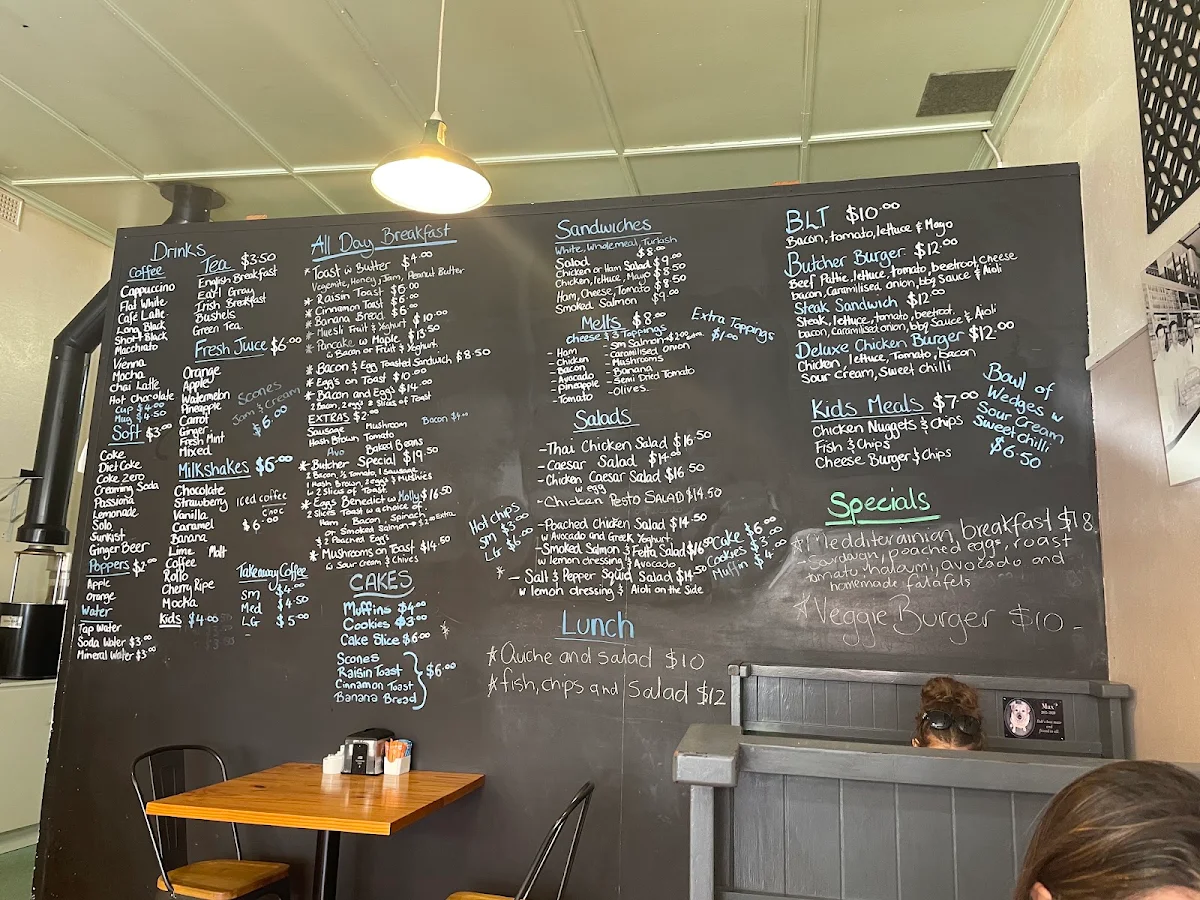 Drinks
Coffee
Cappuccino
Flat White
Café Latte
Long Black
Short Black
Macchiato
Vienna
Mocha
Chai Latte
Hot Chocolate
Cup $4.00
Mug $4.50
Soft $3.00
Coke
Diet Coke
Coke Zero
Creaming Soda
Passiona
Lemonade
Solo
Sunkist
Ginger Beer
Poppers $2.00
Apple
Orange
Water
Tap Water
Soda Water $3.00
Mineral Water $3.00
Tea $3.50
English Breakfast
Earl Gray
Irish Breakfast
Bushels
Green Tea
Fresh Juice $6.00
Orange
Apple
Watermelon
Pineapple
Carrot
Ginger
Fresh Mint
Mixed
Scones
Jam & Cream
$6.00
Milkshakes $6.00
Chocolate
Strawberry
Vanilla
Caramel
Banana
Lime Malt
Coffee
Rollo
Cherry Ripe
Mocha
Kids $4.00
Iced coffee
Choc
$6.00
Takeaway Coffee
SM $4.00
Med $4.50
LG $5.00
All Day Breakfast
* Toast w Butter $4.00
Vegemite, Honey, Jam, Peanut Butter
* Raisin Toast $6.00
* Cinnamon Toast $6.00
* Banana Bread $6.00
- Muesli Fruit & Yoghurt $10.00
* Pancake w Maple $13.50
& Bacon or Fruit & Yoghurt
* Bacon & Egg Toasted Sandwich $8.50
* Egg's on Toast $10.00
* Bacon and Eggs $14.00
2 Bacon, 2 egg's 2 Slices of Toast
EXTRAS $2.00
Sausage Mushroom Bacon $4.00
Hash Brown, Tomato
Avo Baked Beans
* Butcher Special $19.50
2 Bacon, ½ Tomato, 1 Sausage
1 Hash Brown, 2 eggs & Mushies
& 2 Slices of Toast
* Eggs Benedict w Holly $16.50
2 Slices Toast w a choice of
Ham, Bacon, Spinach
or Smoked Salmon → $2.00 Extra
& 2 Poached Eggs
* Mushrooms on Toast $14.50
& Sour Cream & Chives
CAKES
Muffins $4.00
Cookies $3.00
Cake Slice $6.00
*
Scones
Raisin Toast
Cinnamon Toast
Banana Bread
$6.00
Sandwiches
White, Wholemeal, Turkish
Salad $8.00
Chicken or Ham Salad $9.00
Chicken, lettuce, Mayo $8.50
Ham, Cheese, Tomato $8.50
Smoked Salmon $9.00
Melts $8.00
cheese & 3 Toppings
- Ham
- Chicken
- Bacon
- Avocado
- Pineapple
- Tomato
- Sm Salmon - $2.00 extra
- Caramilised onion
- Mushrooms
- Banana
- Semi Dried Tomato
- Olives
Extra Toppings
$1.00
Salads
- Thai Chicken Salad $16.50
- Caesar Salad $14.00
- Chicken Caesar Salad $16.50
w egg
- Chicken Pesto SALAD $14.50
- Poached Chicken Salad $14.50
w Avocado and Greek Yoghurt
- Smoked Salmon & Fetta Salad $16.50
w lemon dressing & Avocado
* - Salt & Pepper Squid Salad $14.50
w lemon dressing & Aioli on the Side
Hot chips
Sm $3.00
LG $6.00
Cake $6.00
Cookies $3.00
Muffin $4.00
Lunch
* Quche and salad $10
* fish, chips and salad $12
BLT $10.00
Bacon, tomato, lettuce & Mayo
Butcher Burger $12.00
Beef Pattie, lettuce, tomato, beetroot, cheese
bacon, Caramilised onion, bbq Sauce & Aioli
Steak Sandwich $12.00
Steak, lettuce, tomato, beetroot,
bacon, Caramilised onion, bbq Sauce & Aioli
Deluxe Chicken Burger $12.00
Chicken, lettuce, Tomato, Bacon
Sour Cream, Sweet chilli
Kids Meals $7.00
Chicken Nuggets & Chips
Fish & Chips
Cheese Burger & Chips
Bowl of
Wedges w
Sour Cream
Sweet chilli
$6.50
Specials
* Medditerainian breakfast $18
- Sardough, poached eggs, roast
tomato, haloumi, avocado and
homemade falafels
* Veggie Burger $10 -
Max